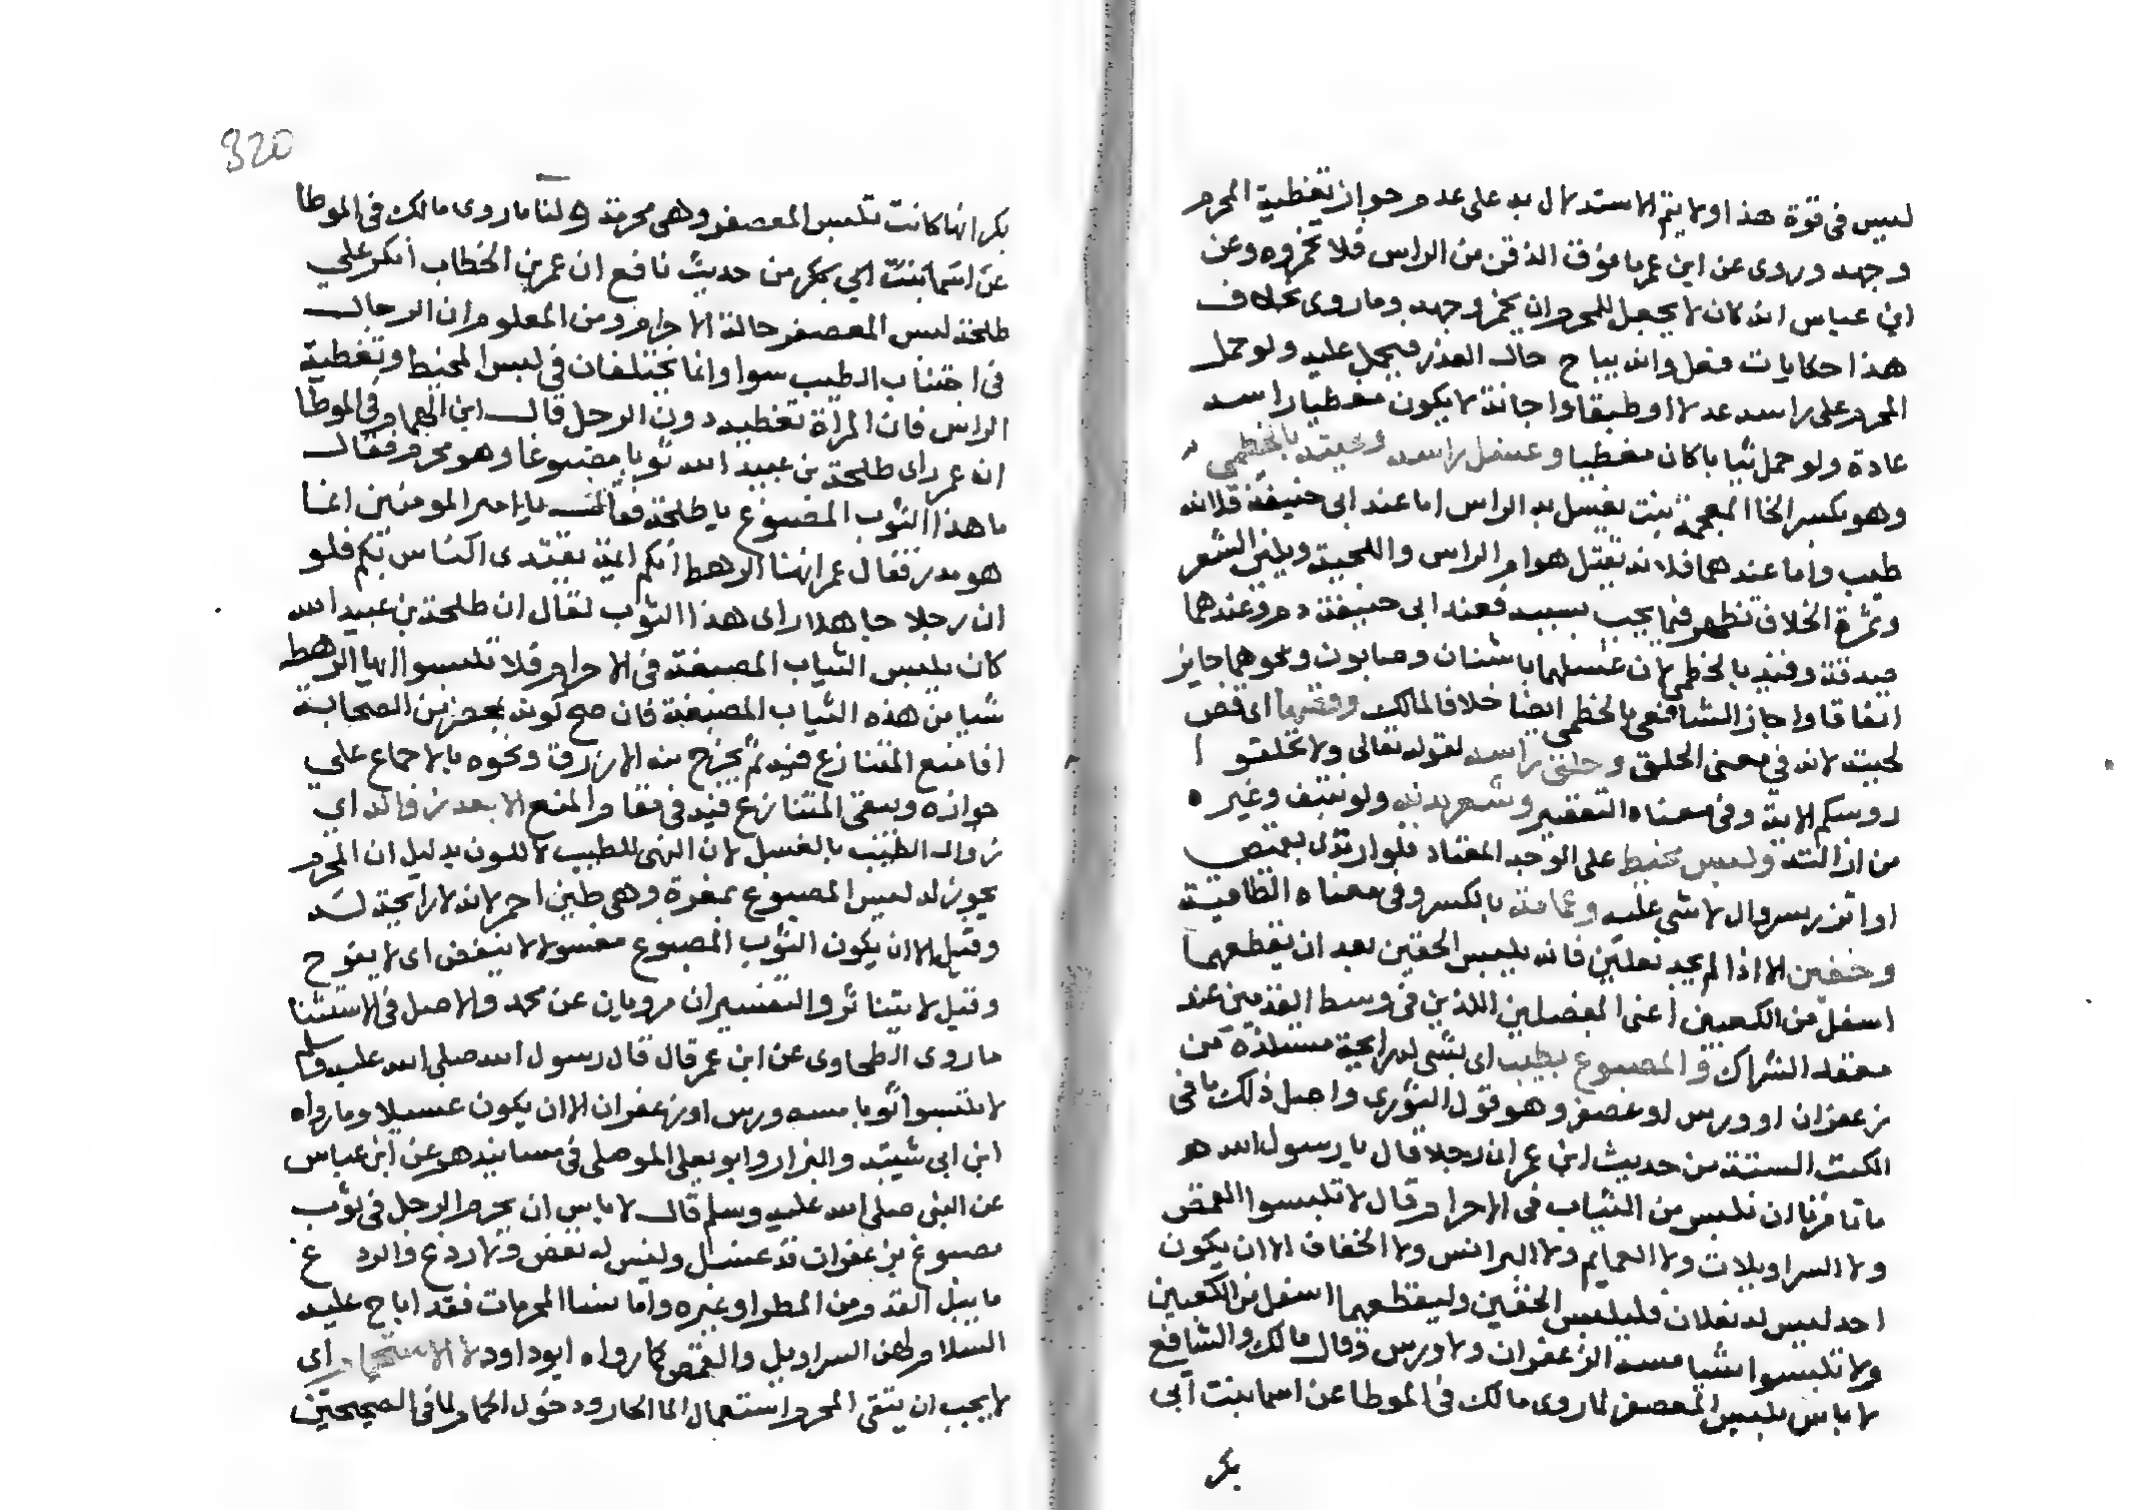 ليس فى قوة هذا ولا يتم الاستدلال به على عدم جواز تغطية المحرم
وجهه وروى عن ابن عمر ما فوق الذقن من الراس فلا تخمروه وعن
ابن عباس انه كان لا يجعل للمحرم ان يخمر وجهه وما روى بخلاف
هذا حكايات فعل وانه يباح حال العذر فيحمل عليه ولو حمل
المحرم على راسه عدلا او طبقا واجانة لا يكون مغطيا راسه
عادة ولو حمل ثيابا كان مغطيا وغسل راسه ولحيته بالخطمى
وهو بكسر الخا المعجمة نبت يغسل به الراس اما عند ابى حنيفة فلانه
طيب واما عندهما فلانه تقتل هوام الراس واللحية ويلين الشعر
وثمرة الخلاف تظهر فيما يجب بسببه فعند ابى حنيفة دم وعندهما
صدقة وقيد بالخطمى لان غسلهما باشنان وصابون ونحوهما جايز
اتفاقا واجاز الشافعى بالخطمى ايضا خلافا لمالك وقصها اى قص
لحيته لانه فى معنى الحلق وحلق راسه لقوله تعالى ولا تحلقوا
روسكم الاية وفى معناه التقصير وشعر بدنه ولو نتف وغيره
من ازالته ولبس مخيط على الوجه المعتاد فلو ارتدى بقميص
او اتزر بسروال لا شى عليه وعمامة بالكسر وفى معناه الطاقية
وخفين الا اذا لم يجد نعلين فانه يلبس الخفين بعد ان يقطعهما
اسفل من الكعبين اعنى المفصلين اللذين فى وسط القدمين عند
معقد الشراك والمصبوغ بطيب اى بشى له رايحة مستلذة من
زعفران او ورس او عصفر وهو قول الثورى واصل ذلك ما فى
الكتب الستة من حديث ابن عمر ان رجلا قال يا رسول الله
ما تامرنا ان نلبس من الثياب فى الاحرام قال لا تلبسوا القمص
ولا السراويلات ولا العمايم ولا البرانس ولا الخفاف الا ان يكون
احد ليس له نعلان فليلبس الخفين وليقطعهما اسفل من الكعبين
ولا تلبسوا شيا مسه الزعفران ولا ورس وقال مالك والشافع
لا باس بلبس المعصفر لما روى مالك فى الموطا عن اسما بنت ابى
بكر
320
بكر انها كانت تلبس المعصفر وهى محرمة ولنا ما روى مالك فى الموطا
عن اسما بنت ابي بكر من حديث نافع ان عمر بن الخطاب انكر علي
طلحة لبس المعصفر حالة الاحرام ومن المعلوم ان الرجال
فى اجتناب الطيب سوا وانما يختلفان فى لبس المخيط وتغطية
الراس فان المراة تغطيه دون الرجل قال ابن الهمام وفى الموطا
ان عمر راى طلحة بن عبيد الله ثوبا مصبوغا وهو محرم فقال
ما هذا الثوب المصبوغ يا طلحة فقال يا امير المومنين انما
هو مدر فقال عمر ايها الرهط انكم ايمة يقتدى الناس بكم فلو
ان رجلا جاهلا راى هذا الثوب لقال ان طلحة بن عبيد الله
كان يلبس الثياب المصبغة فى الاحرام فلا تلبسوا ايها الرهط
شيا من هذه الثياب المصبغة فان صح كونه بمحضر من الصحابة
افاد منع المتنازع فيه ثم يخرج منه الازرق ونحوه بالاجماع علي
جوازه ويبقى المتنازع فيه فى والمنع الا بعد زواله اى
زوال الطيب بالغسل لان النهى للطيب لا للون بدليل ان المحرم
يجوز له لبس المصبوغ بمغرة وهى طين احمر لانه لا رايحة له
وقيل الا ان يكون الثوب المصبوغ مغسولا لا ينفض اى لا يفوح
وقيل لا يتناثر والتفسيران مرويان عن محمد والاصل فى الاستثنا
ما روى الطحاوى عن ابن عمر قال قال رسول الله صلى الله عليه وسلم
لا تلبسوا ثوبا مسه ورس او زعفران الا ان يكون غسيلا وما رواه
ابن ابى شيبه والبزار وابو يعلى الموصلى فى مسانيدهم عن ابن عباس
عن النبى صلى الله عليه وسلم قال لا باس ان يحرم الرجل فى ثوب
مصبوغ بزعفران قد غسل وليس له نفض ولا ردغ والردغ
ما يبل القدم من المطر او غيره واما نسا المحرمات فقد اباح عليه
السلام لهن السراويل والقمص كما رواه ابو داود لا الاستحمام اى
لا يجب ان يتقى المحرم استعمال الما الحار ودخول الحمام لما فى الصحيحين